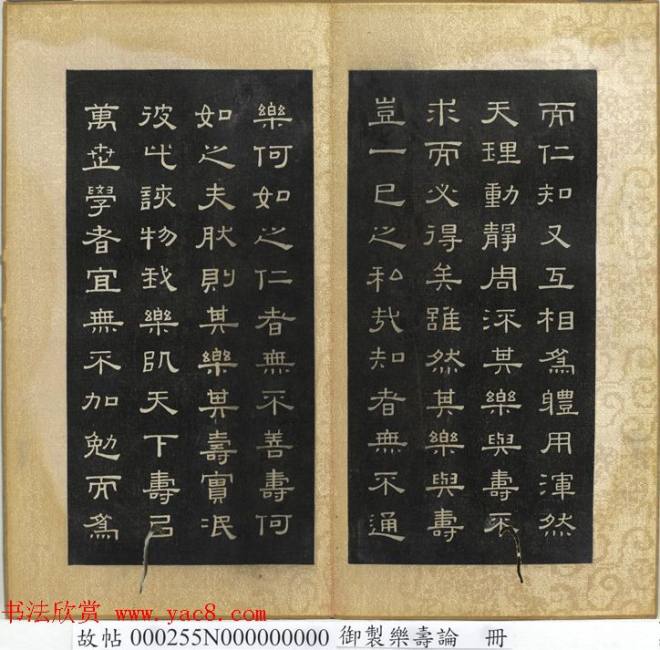 而仁知又互相爲軆用渾然
天理動靜周深其樂與壽不
求而必得矣雖然其樂與壽
豈一己之私哉知者無不通
樂何如之仁者無不善壽何
如之夫肰則其樂其壽實泯
彼此該物我樂既天下壽吕
萬世學者宜無不加勉而爲
书法欣赏 www.yac8.com
故帖 000255N000000000 御製樂壽論 冊